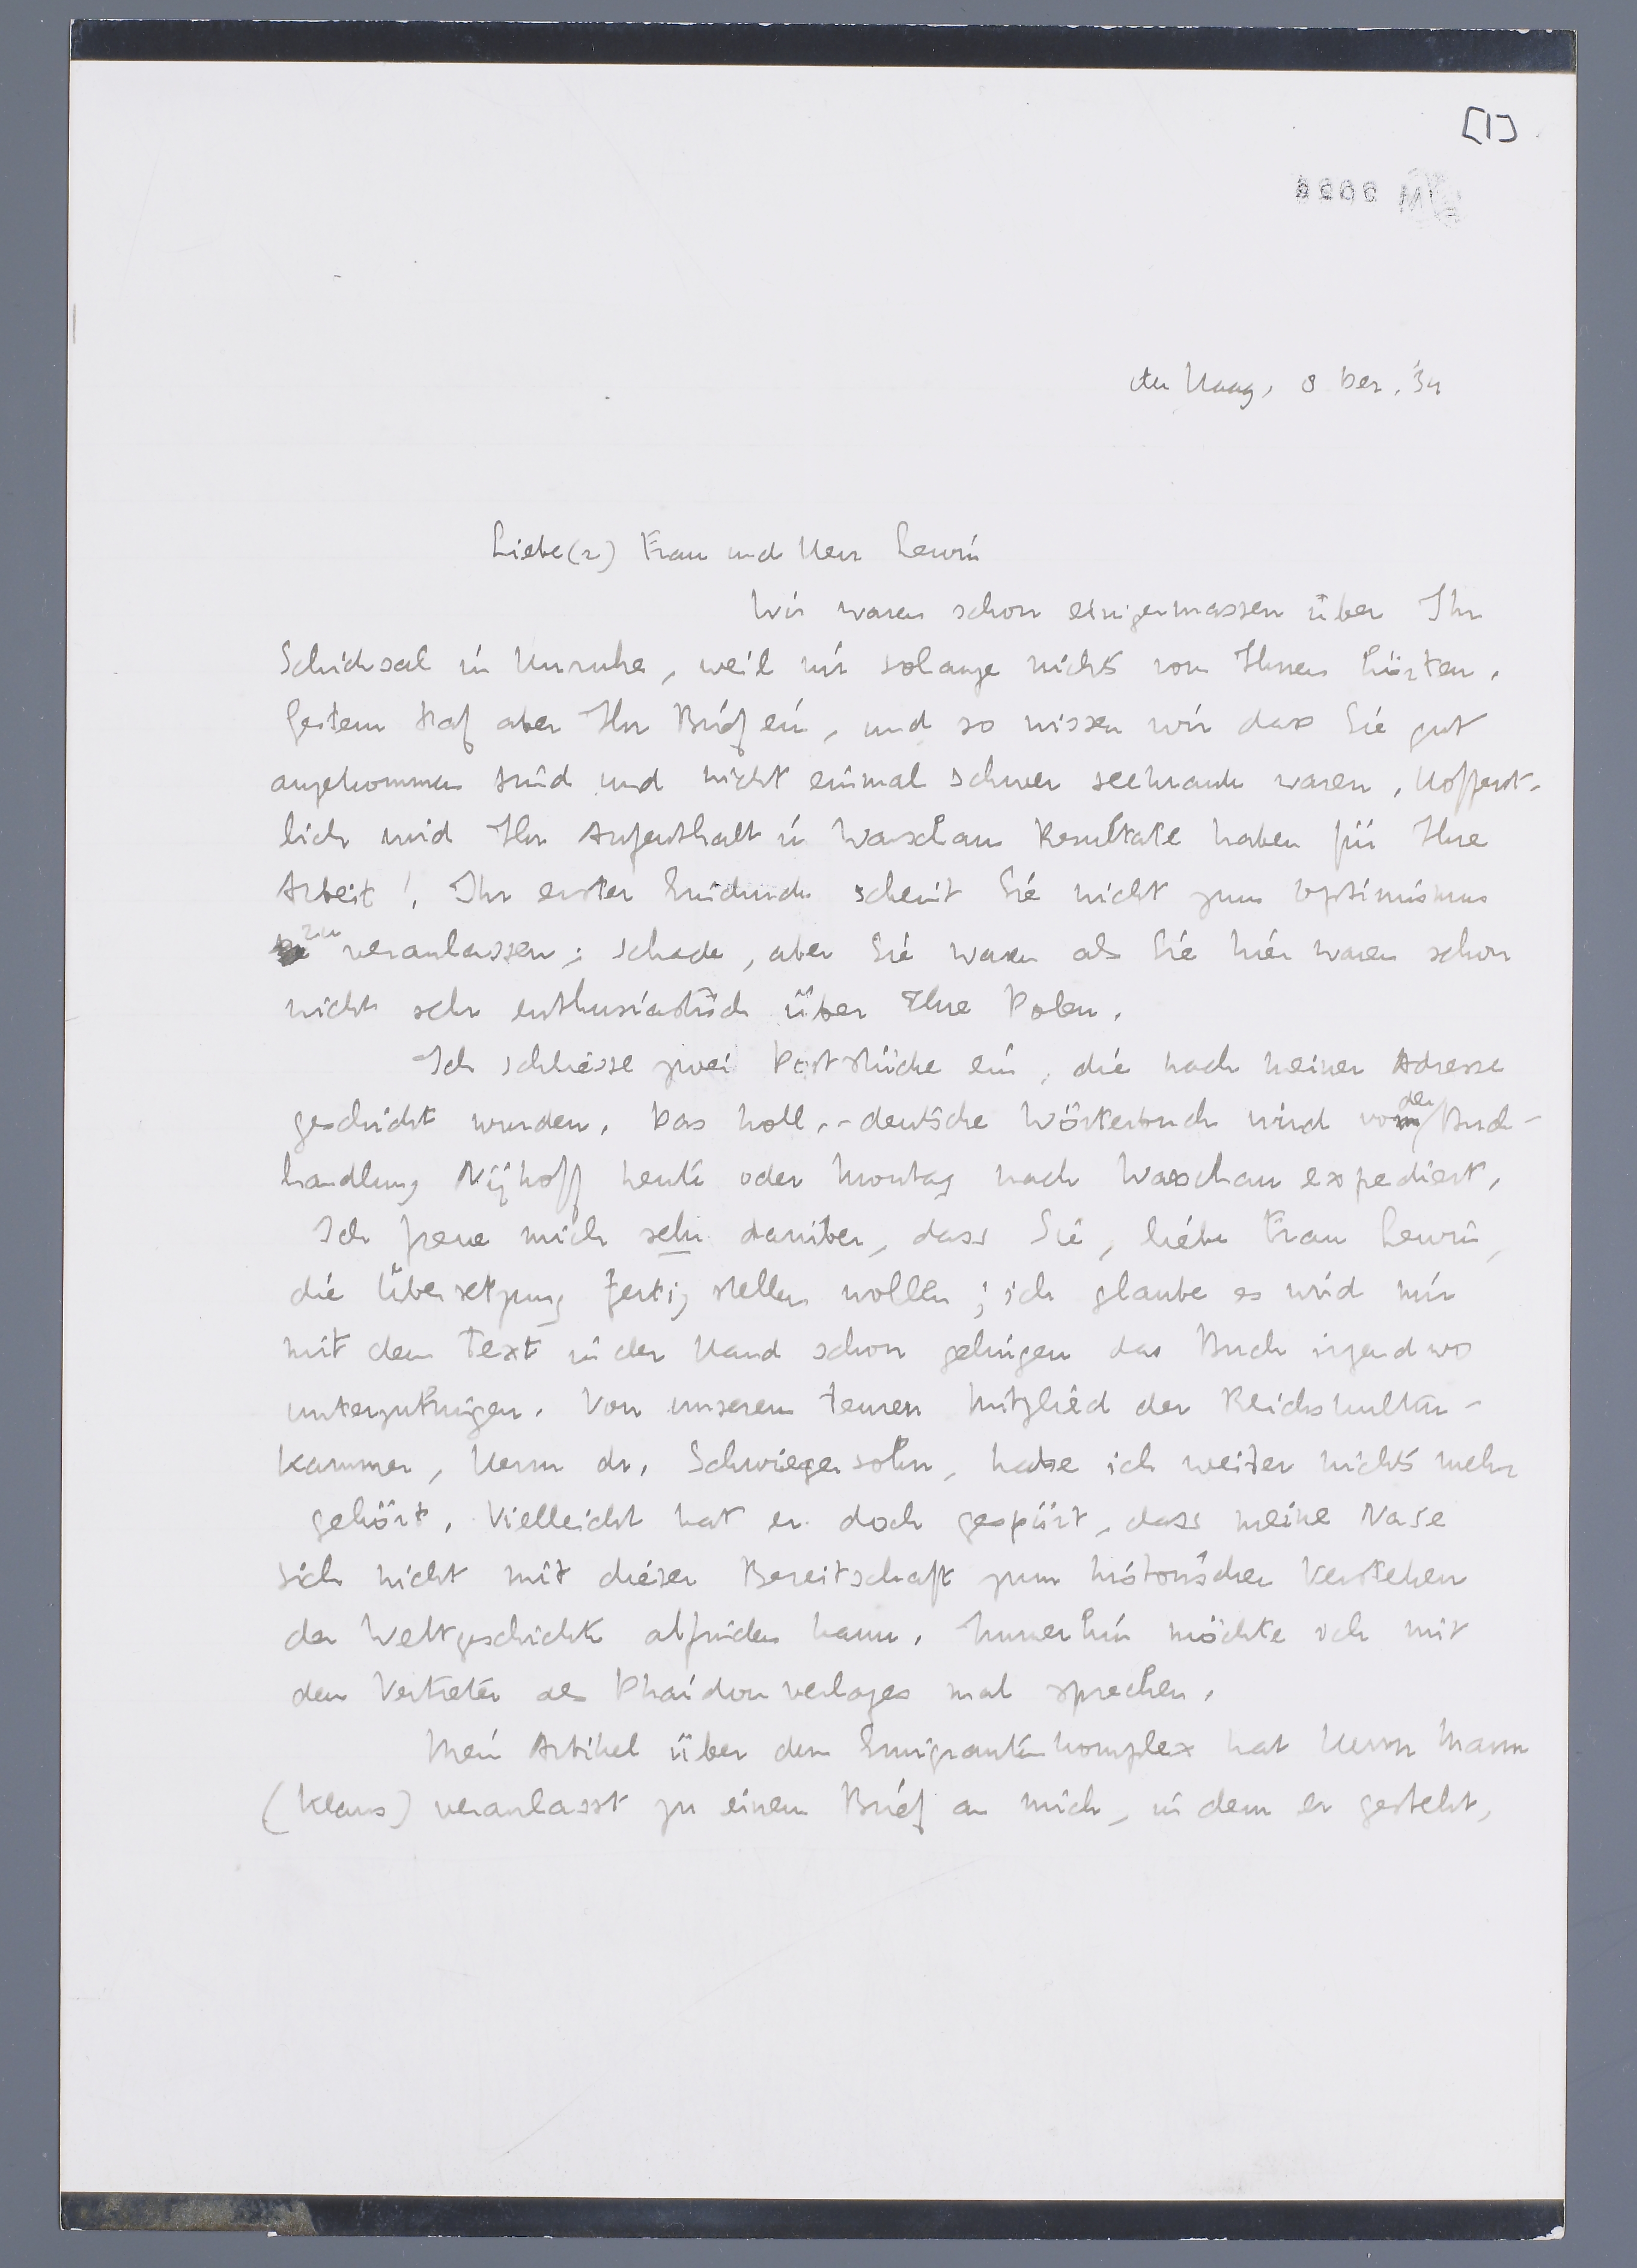 [1]
den Haag, 8 Dez. '34
Liebe(r) Frau und Herr Lewin
Wir waren schon einigermassen über Ihr
Schicksal in Unruhe, weil wir solange nichts von Ihnen hörten.
Gestern traf aber Ihr Brief ein, und so wissen wir dass Sie gut
angekommen sind und nicht einmal schwer seekrank waren. Hoffent-
lich wird Ihr Aufenthalt in Warschau Resultate haben für Ihre
Arbeit! Ihr erster Eindruck scheint Sie nicht zum Optimismus
zu veranlassen; schade, aber Sie waren als Sie hier waren schon
nicht sehr enthusiastisch über Ihre Polen.
Ich schliesse zwei Poststücke ein, die nach meiner Adresse
geschickt wurden. Das holl.-deutsche Wörterbuch wird von der Buch-
handlung Nijhoff heute oder Montag nach Warschau expediert.
Ich freue mich sehr darüber, dass Sie, liebe Frau Lewin,
die Übersetzung fertig stellen wollen; ich glaube es wird mir
mit dem Text in der Hand schon gelingen das Buch irgendwo
unterzubringen. Von unserem teuren Mitglied der Reichskultur-
kammer, Herrn dr. Schwiegersohn, habe ich weiter nichts mehr
gehört. Vielleicht hat er doch gespürt, dass meine Nase
sich nicht mit dieser Bereitschaft zum historischen Verstehen
der Weltgeschichte abfinden kann. Immerhin möchte ich mit
dem Vertreter des Phaidonverlages mal sprechen.
Mein Artikel über den Emigrantenkomplex hat Herrn Mann
(Klaus) veranlasst zu einem Brief an mich, in dem er gesteht,